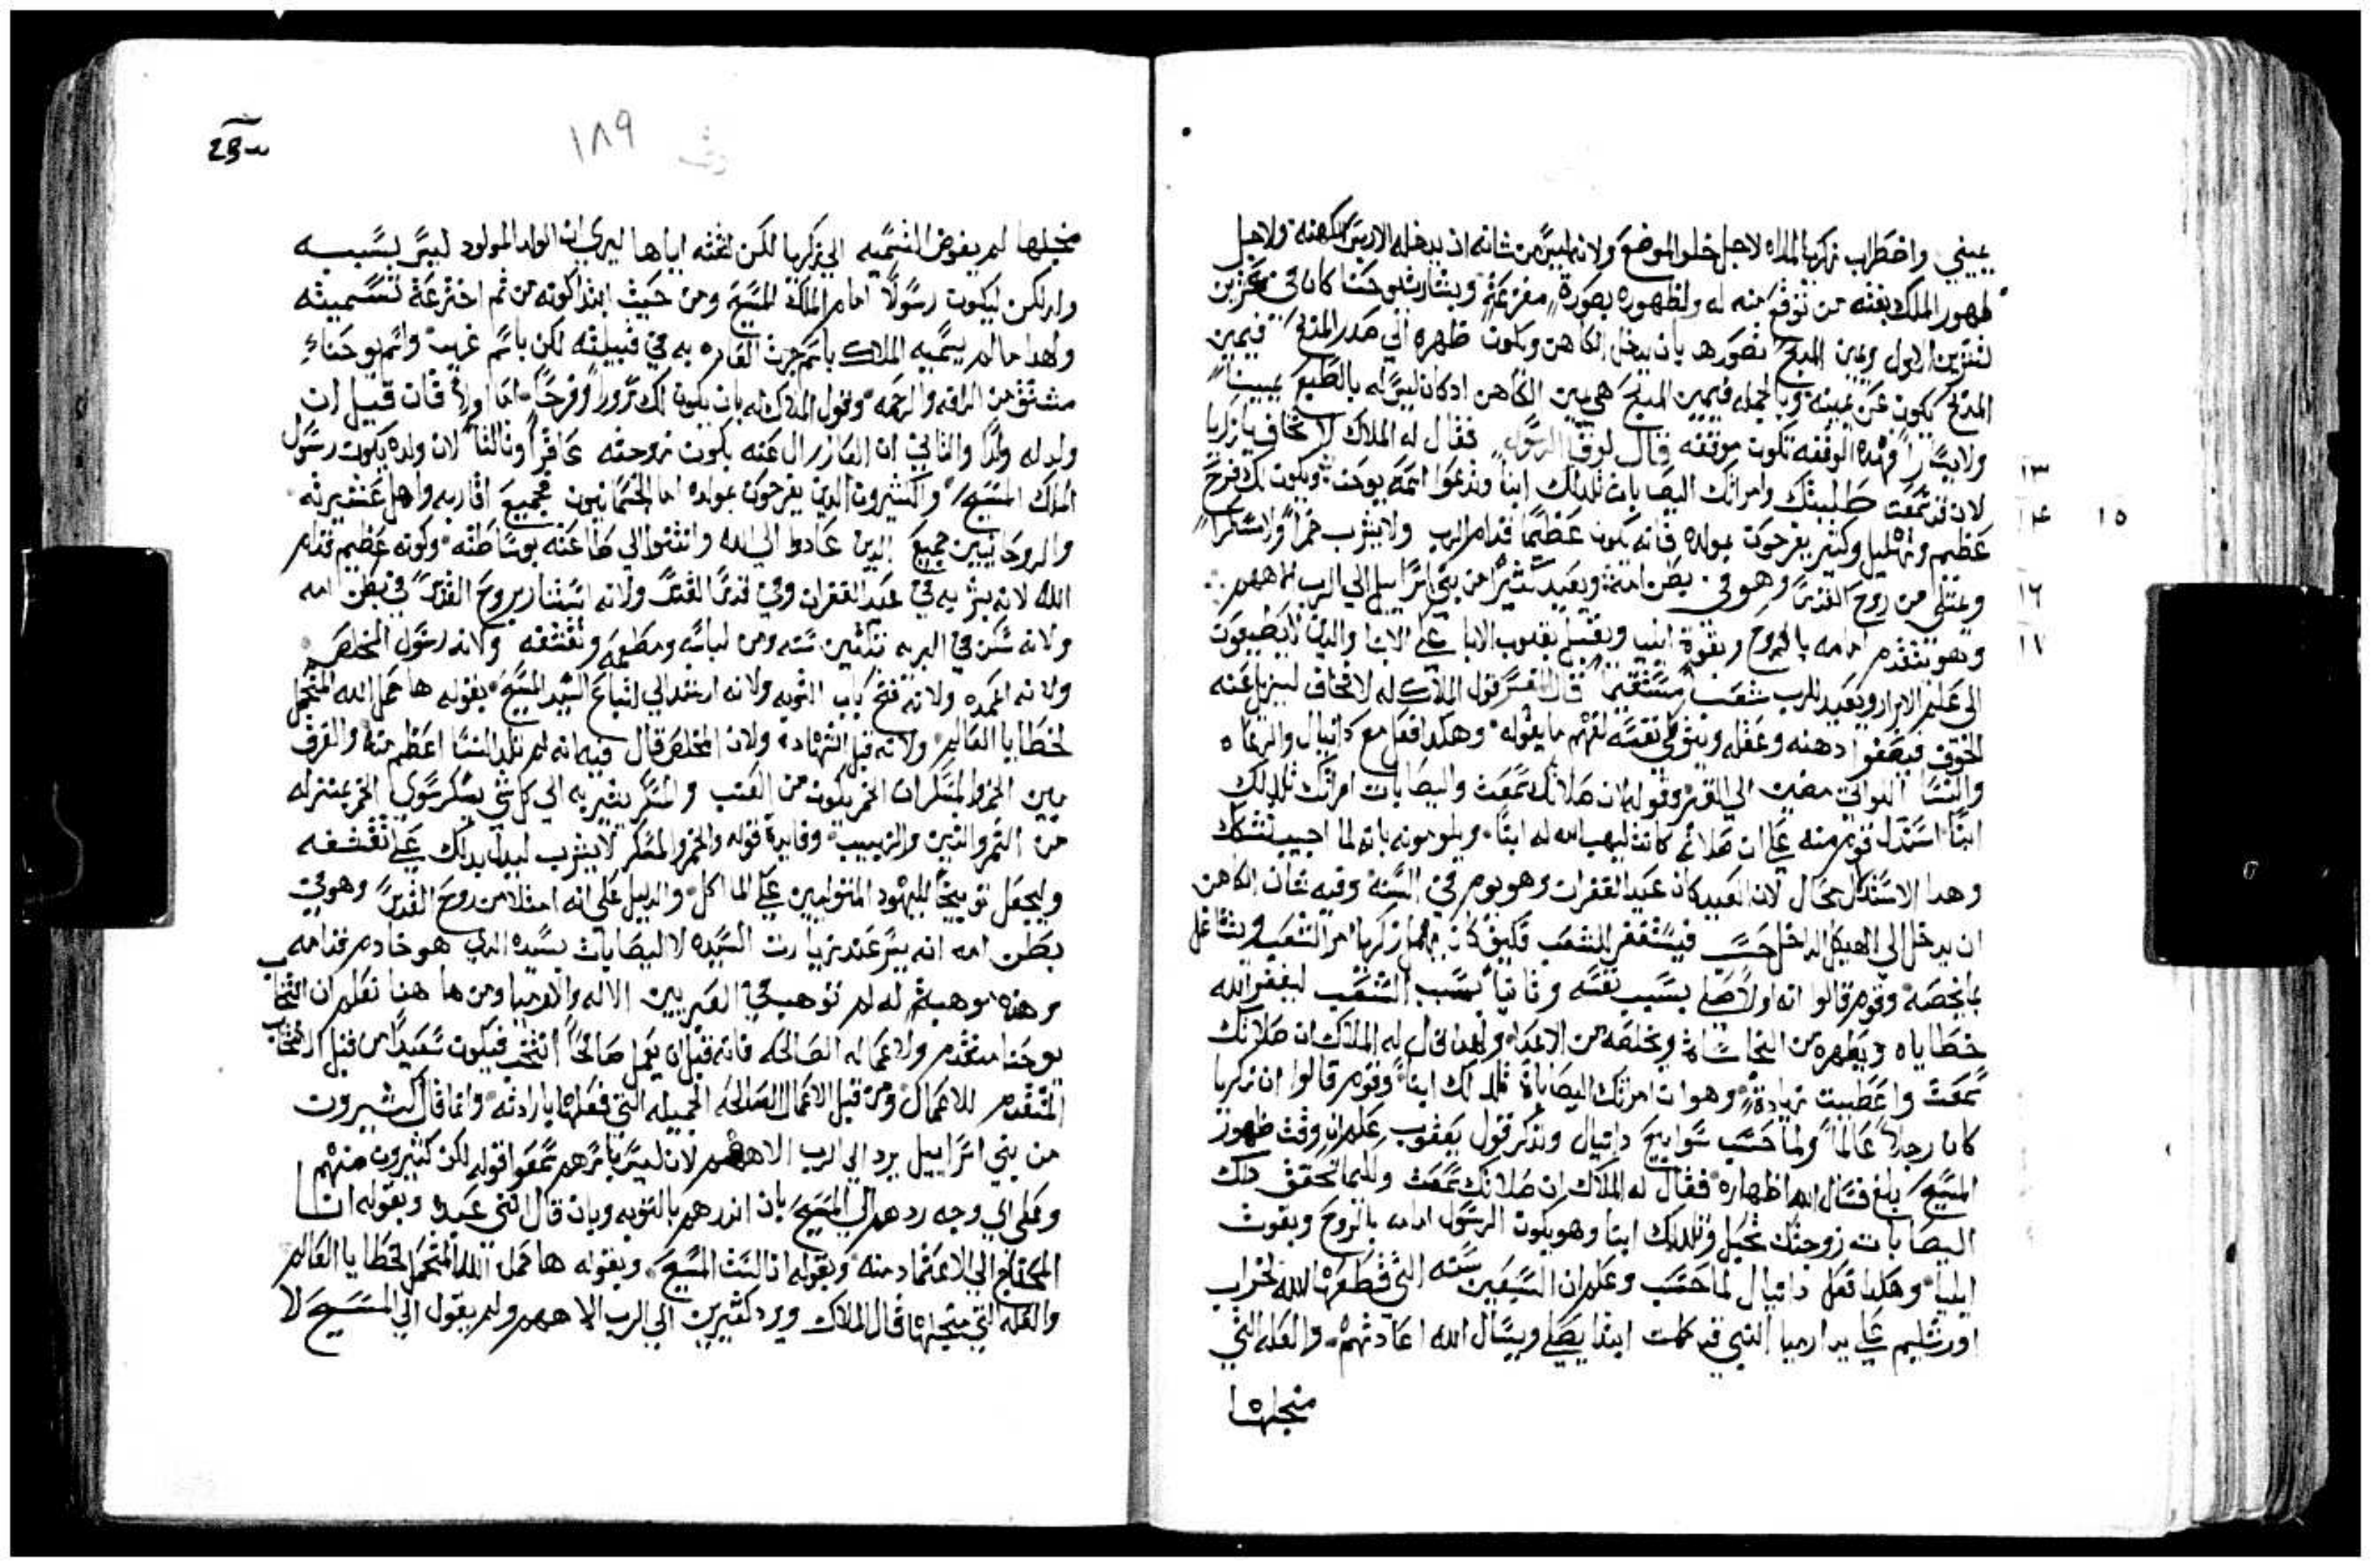 يميني واضطراب زكريا لهداه لاجل خلو الموضع ولانه ليس من شانه ان يدخله الا ريس الكهنه ولاجل
ظهور الملاك بغته من توقع منه له ولظهوره بصورة مفزعة وبشارته بيوحنا كان في عشرين
تشرين الاول ويمين المدبح تصوره بان يدخل الكاهن ويكون ظهره الي صدر المدبح فيمين
المدبح يكون عن يمينه وبالجمله فيمين المدبح هي يمين الكاهن اد كان ليس له بالطبع يمينا
ولا يسارا فهده الوقفه تكون موقفه قال لوقا الرسول فقال له الملاك لا تخاف يا زكريا
١٣
لان قد سمعت طلبتك وامراتك اليصابات تلد لك ابنا وتدعوا اسمه يوحنا ويكون لك فرح
١٤ ١٥
عظيم وتهليل وكثير يفرحون بمولده فانه يكون عظيما قدام الرب ولا يشرب خمرا ولا سكرا
ويمتلي من روح القدس وهو في بطن امه ويعيد كثيرا من بني اسراييل الي الرب الاههم
١٦
وهو يتقدم امامه بالروح وبقوة ايليا ويقبل بقلوب الابا علي الابنا والدين لا يطيعون
١٧
الي علم الابرار ويعد للرب شعبا مستقيما قال المفسر قول الملاك له لا تخاف ليزيل عنه
الخوف فيصفوا دهنه وعقله ويتوفي نفسه لفهم ما يقوله وهكدا فعل مع دانيال والرعاه
والنسا اللواتي مضين الي القبر وقوله ان صلاتك سمعت واليصابات امراتك تلد لك
ابنا استدل قوم منه علي ان صلاته كانت ليهب الله له ابنا ويلومونه بانه لما اجيب تشكك
وهدا الاستدلال محال لان العيد كان عيد الغفران وهو يوم في السنة وفيه كان الكاهن
ان يدخل الي الهيكل الداخل حسب فيستغفر للشعب فكيف كان يهمل زكريا امر الشعب ويتشاغل
بما يخصه وقوم قالوا انه اولا صلي بسبب نفسه وثانيا بسبب الشعب ليغفر الله
خطاياه ويطهره من النجاسات ويخلصه من الاعدا ولهدا قال له الملاك ان صلاتك
سمعت واعطيت زيادة وهو ان امراتك اليصابات تلد لك ابنا وقوم قالوا ان زكريا
كان رجلا عالما ولما حسب سوابيع دانيال وتدكر قول يعقوب علم ان وقت ظهور
المسيح بلغ فسال الله اظهاره فقال له الملاك ان صلاتك سمعت ولكيما تتحقق دلك
اليصابات زوجتك تحبل وتلد لك ابنا وهو يكون الرسول امامه بالروح وبقوت
ايليا وهكدا فعل دانيال لما حسب وعلم ان السبعين سنه التي قطعها الله لخراب
اورشليم علي يد ارميا النبي قد كملت ابتدا يصلي ويسال الله اعادتهم والعله التي
منجلها
١٨٩
منجلها لم يفوض التسميه الي زكريا لكن لقنه اياها ليري ان الولد المولود ليس بسببه
ولد لكن ليكون رسولا امام الملك المسيح ومن حيث ابتدا كونه من ثم اخترعة تسميته
ولهدا ما لم يسميه الملاك باسم جرت العاده به في قبيلته لكن باسم غريب واسم يوحنا
مشتق من الرافه والرحمه وقول الملاك له بان يكون لك سرور وفرح اما اولا فان قبل ان
ولد له ولدا والثاني ان العار زال عنه بكون زوجته عاقرا وثالثا لان ولده يكون رسول
الملك المسيح والكثيرون الدين يفرحون بمولده اما الجسمانيون فجميع اقاربه واهل عشيرته
والروحانيين جميع الدين عادوا الي الله وانتنوا الي طاعته بوساطته وكونه عظيم قدام
الله لانه بشر به في عيد الغفران وفي قدس القدس ولانه استنار بروح القدس في بطن امه
ولانه سكن في البريه تلثين سنه ومن لباسه ومطعمه وتقشفه ولانه رسول المخلص
ولانه اعمده ولانه فتح باب التوبه ولانه ارشد الي اتباع السيد المسيح بقوله ها حمل الله المتحمل
لخطايا العالم ولانه قبل الشهاده ولان المخلص قال فيه انه لم تلد النسا اعظم منه والفرق
بين الخمر والمسكر ان الخمر يكون من العنب والمسكر يشير به الي كل شي يسكر سوي الخمر بمنزله
من التمر والتين والزبيب وفايدة قوله والخمر والمسكر لا يشرب ليدل بدلك علي تقشفه
وليجعل توبيخا لليهود المتوانين علي الماكل والدليل علي انه امتلا من روح القدس وهو في
بطن امه انه بشر عند زيارت السيده لاليصابات بسيده الدي هو خادم قدامه
وهده موهبة له لم توهب في العبريين الا له ولارميا ومن ها هنا نعلم ان انتخاب
يوحنا متقدم ولاعماله الصالحه فانه قبل ان يعمل صالحا انتخب فيكون سعيدا من قبل الانتخاب
المتقدم للاعمال ومن قبل الاعمال الصالحه الجميله التي فعلها بارادته وانما قال كثيرون
من بني اسراييل يرد الي الرب الاههم لان ليس باسرهم سمعوا قوله لكن كثيرون منهم
وعلي اي وجه ردهم الي المسيح بان اندرهم بالتوبه وبان قال انني عبده وبقوله انا
المحتاج الي الاعتماد منه وبقوله انا لست المسيح وبقوله ها حمل الله المتحمل لخطايا العالم
والعله التي منجلها قال الملاك ويرد كثيرين الي الرب الاههم ولم يقول الي المسيح لا